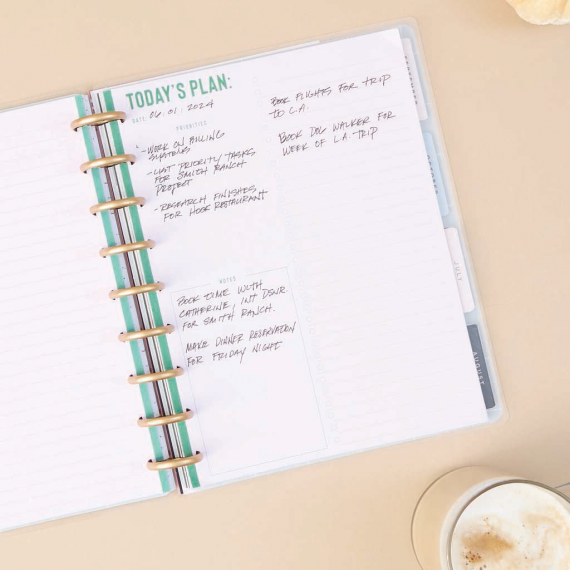 TODAY'S PLAN:
DATE: 06.01.2024
PRIORITIES
- WORK ON BILLING
SYSTEMS
- LIST PRIORITY TASKS
FOR SMITH RANCH
PROJECT
- RESEARCH FINISHES
FOR HOOK RESTAURANT
BOOK FLIGHTS FOR TRIP
TO L.A.
BOOK DOG WALKER FOR
WEEK OF L.A. TRIP
NOTES
BOOK TIME WITH
CATHERINE, INT DSNR.
FOR SMITH RANCH.
MAKE DINNER RESERVATION
FOR FRIDAY NIGHT
JULY
AUGUST